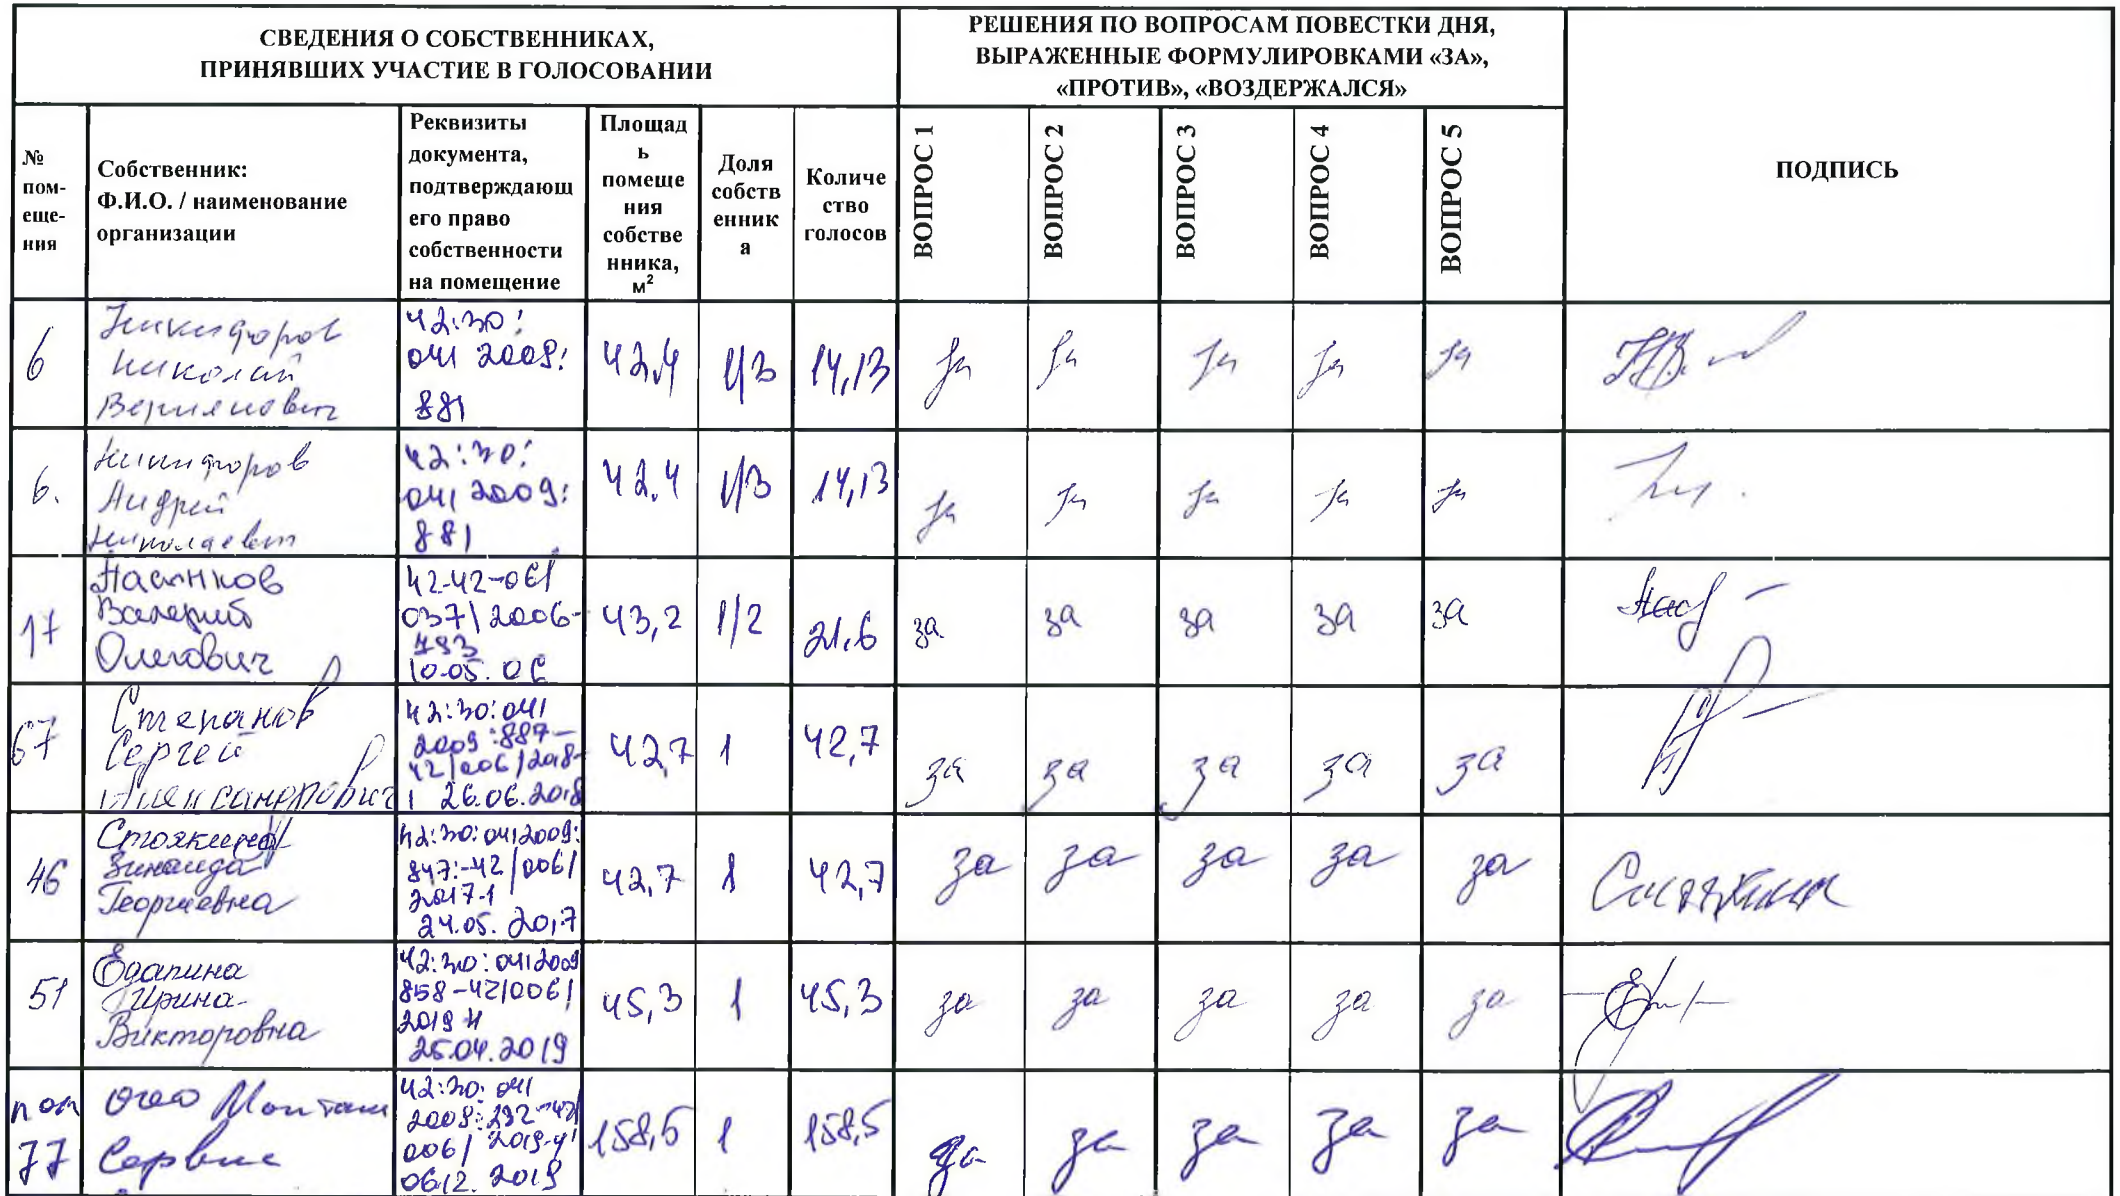 СВЕДЕНИЯ О СОБСТВЕННИКАХ,
ПРИНЯВШИХ УЧАСТИЕ В ГОЛОСОВАНИИ
РЕШЕНИЯ ПО ВОПРОСАМ ПОВЕСТКИ ДНЯ,
ВЫРАЖЕННЫЕ ФОРМУЛИРОВКАМИ «ЗА»,
«ПРОТИВ», «ВОЗДЕРЖАЛСЯ»
№
пом-
еще-
ния
Собственник:
Ф.И.О. / наименование
организации
Реквизиты
документа,
подтверждающ
его право
собственности
на помещение
Площад
ь
помеще
ния
собстве
нника,
м²
Доля
собств
енник
а
Количе
ство
голосов
ВОПРОС 1
ВОПРОС 2
ВОПРОС 3
ВОПРОС 4
ВОПРОС 5
ПОДПИСЬ
6
Никифоров
Николай
42:30:
041 2009:
881
42,4
1/3
14,13
за
за
за
за
за
6.
Никифоров
Андрей
Николаевич
42:30:
041 2009:
881
42.4
1/3
14,13
за
за
за
за
за
17
Насонков
Валерий
Олегович
42-42-06/
037/2006-
10.05.06
43,2
1/2
21.6
за
за
за
за
за
67
Степанов
Сергей
Александрович
42:30:041
2009:887-
42/006/2018-
1 26.06.2018
42,7
1
42,7
за
за
за
за
за
46
Стоякина
Зинаида
Георгиевна
42:30:0412009:
847:-42/006/
2017-1
24.05.2017
42,7
1
42,7
за
за
за
за
за
Стоякина
51
Едапина
Ирина
Викторовна
42:30:0412009
858-42/006/
25.04.2019
45,3
1
45,3
за
за
за
за
за
пом
77
ООО Монтаж
Сервис
42:30:041
006/2019-4
06.12.2019
158,5
1
158,5
за
за
за
за
за